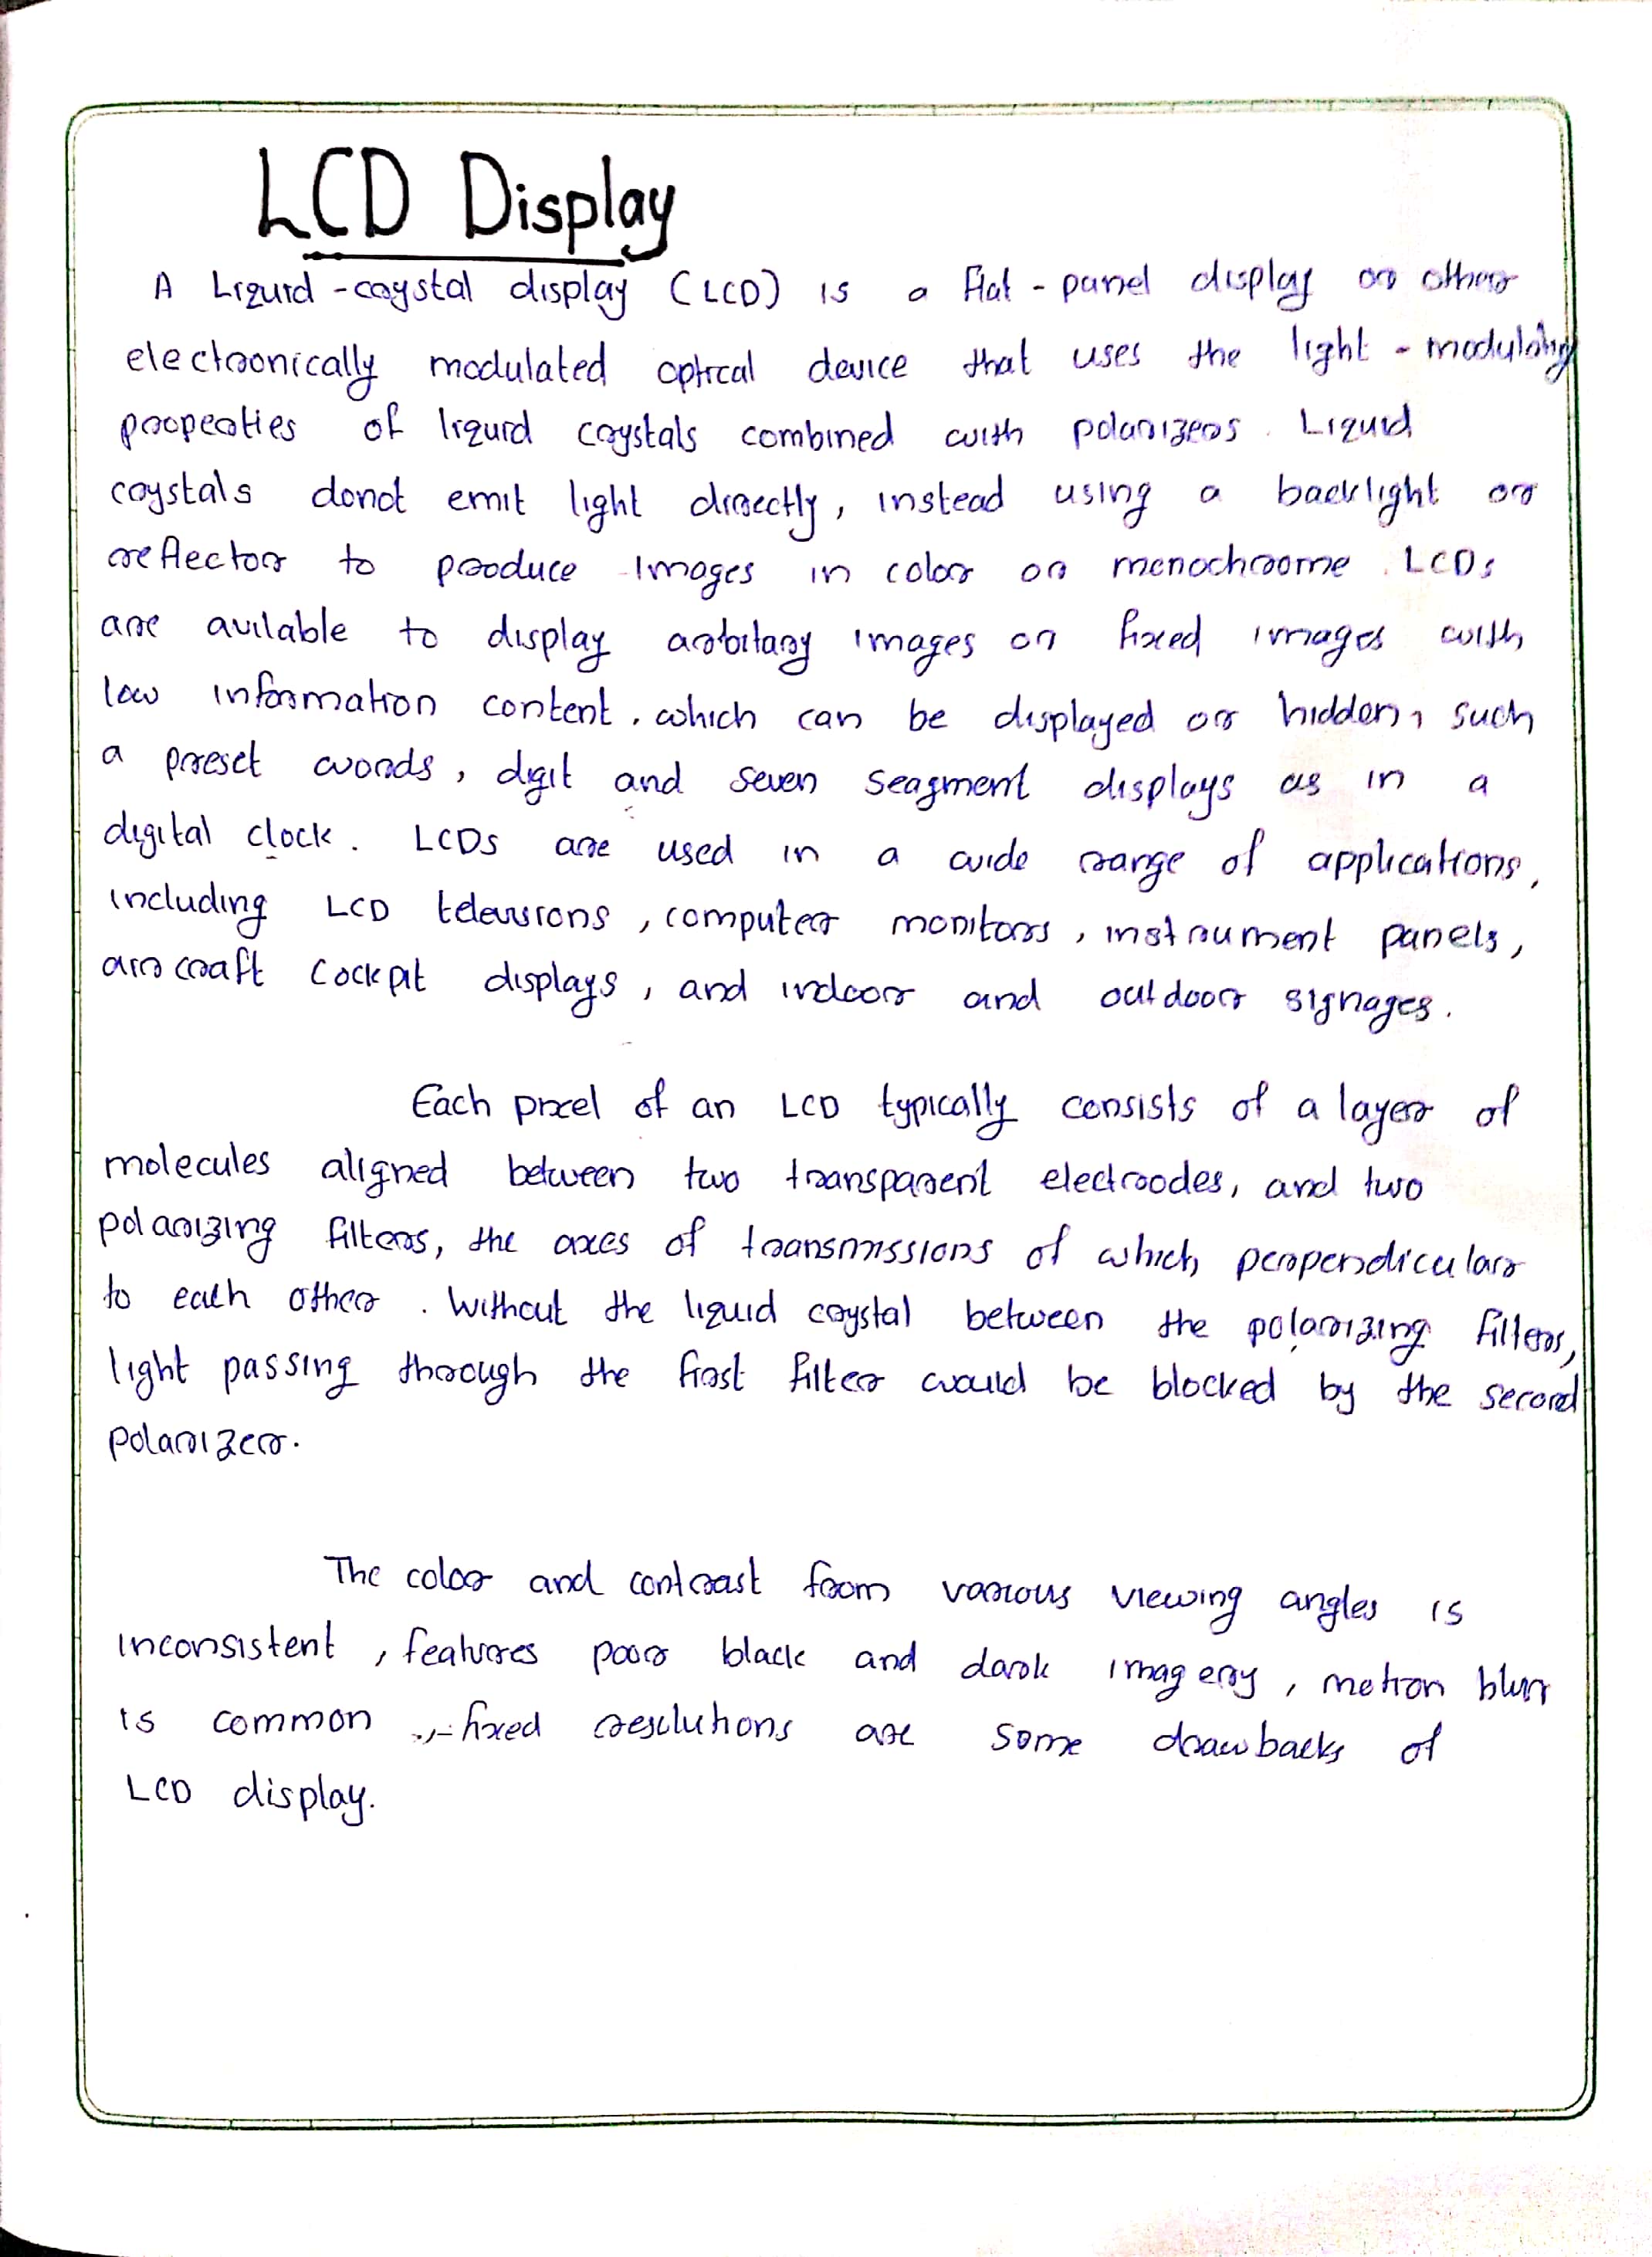 LCD Display
A Liquid-crystal display (LCD) is a flat-panel display or other
electronically modulated optical device that uses the light-modulating
properties of liquid crystals combined with polarizers. Liquid
crystals donot emit light directly, instead using a backlight or
reflector to produce Images in color or monochrome. LCDs
are avilable to display arbitary images or fixed images with
low information content, which can be displayed or hidden, such
a preset words, digit and seven seagment displays as in a
digital clock. LCDs are used in a wide range of applications,
including LCD televisions, computer monitors, instrument panels,
aircraft cockpit displays, and indoor and outdoor signages.
Each pixel of an LCD typically consists of a layer of
molecules aligned between two transparent electrodes, and two
polarizing filters, the axes of transmissions of which perpendicular
to each other. Without the liquid crystal between the polarizing filters,
light passing through the first filter would be blocked by the second
polarizer.
The color and contrast from various viewing angles is
inconsistent, features poor black and dark imagery, motion blur
is common, fixed resolutions are some drawbacks of
LCD display.